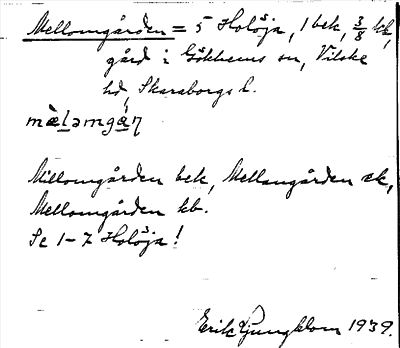 Mellomgården = 5 Holöja, 1 bek, 3/8 kk,
gård i Gökhems sn, Vilske
hd, Skaraborgs l.
mæ̀ləmgáɳ
Millomgården bek, Mellangården ek,
Mellomgården kb.
Se 1-7 Holöja!
Erik Ljungblom 1939.